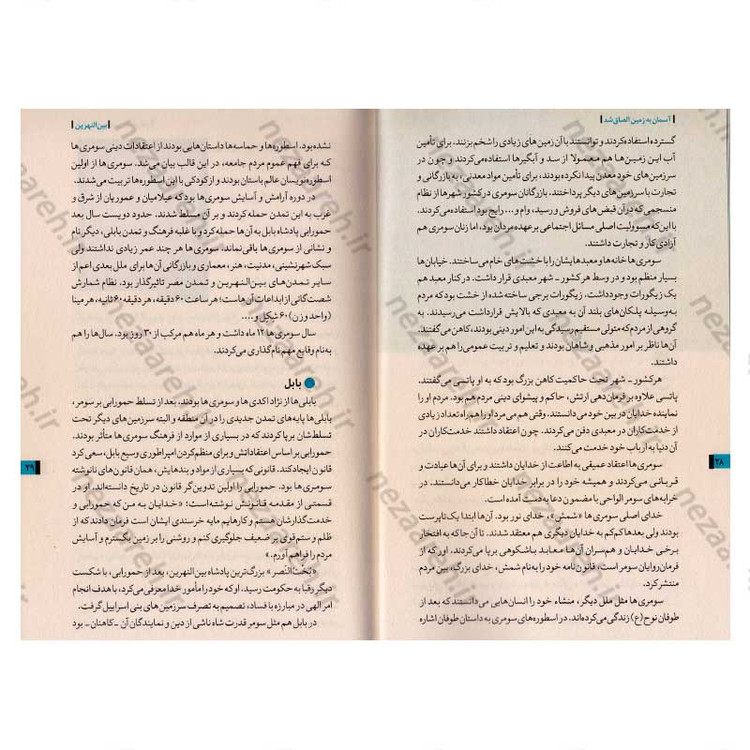 آسمان به زمین الصاق شد
گسترده استفاده کردند و توانستند با آن زمین‌های زیادی را شخم بزنند. برای تأمین
آب این زمین‌ها هم معمولا از سد و آبگیرها استفاده می‌کردند و چون در
سرزمین‌های خود معدن پیدا نکرده بودند، برای تأمین مواد معدنی، به بازرگانی و
تجارت با سرزمین‌های دیگر پرداختند. بازرگانان سومری در کشور شهرها از نظام
منسجمی که در آن قبض‌های فروش و رسید، وام و... رایج بود استفاده می‌کردند.
با این‌که مسوولیت اصلی مسائل اجتماعی بر عهده مردان بود، اما زنان سومری هم
آزادی کار و تجارت داشتند.
سومری‌ها خانه‌ها و معابدهایشان را با خشت‌های خام می‌ساختند. خیابان‌ها
بسیار منظم بود و در وسط هر کشور ـ شهر معبدی قرار داشت. در کنار معبد هم
یک زیگورات وجود داشت، زیگورات برجی ساخته شده از خشت بود که مردم
به‌وسیله پلکان‌های بلند آن به معبدی که بالایش قرار داشت می‌رسیدند. به
گروهی از مردم که متولی مستقیم رسیدگی به این امور دینی بودند، کاهن می‌گفتند.
آن‌ها ناظر بر امور مذهبی و شاهان بودند و تعلیم و تربیت عمومی را هم بر عهده
داشتند.
هر کشور ـ شهر تحت حاکمیت کاهن بزرگ بود که به او پاتسی می‌گفتند.
پاتسی علاوه بر فرماندهی ارتش، حاکم و پیشوای دینی مردم هم بود. مردم او را
نماینده خدایان در بین خود می‌دانستند. وقتی هم می‌مرد او را همراه تعداد زیادی
از خدمت‌کاران در معبدی دفن می‌کردند. چون اعتقاد داشتند خدمت‌کاران در
آن دنیا به ارباب خود خدمت می‌کنند.
سومری‌ها اعتقاد عمیقی به اطاعت از خدایان داشتند و برای آن‌ها عبادت و
قربانی می‌کردند و همیشه خود را در برابر خدایان خطاکار می‌دانستند. در
خرابه‌های سومر الواحی با مضمون دعا به دست آمده است.
خدای اصلی سومری‌ها «شمش»، خدای نور بود. آن‌ها ابتدا یکتاپرست
بودند ولی بعدها کم‌کم به خدایان دیگری هم معتقد شدند. تا آن‌جا که به افتخار
برخی خدایان و همسران آن‌ها معابد باشکوهی برپا می‌کردند. اور که از
فرمان‌روایان سومر است، قانون‌نامه خود را به‌نام شمش، خدای بزرگ، بین مردم
منتشر کرد.
سومری‌ها مثل ملل دیگر، منشاء خود را انسان‌هایی می‌دانستند که بعد از
طوفان نوح(ع) زندگی می‌کرده‌اند. در اسطوره‌های سومری به داستان طوفان اشاره
۲۸
بین‌النهرین
نشده بود. اسطوره‌ها و حماسه‌ها داستان‌هایی بودند از اعتقادات دینی سومری‌ها
که برای فهم عموم مردم جامعه، در این قالب بیان می‌شد. سومری‌ها از اولین
اسطوره‌نویسان عالم باستان بودند و از کودکی با این اسطوره‌ها تربیت می‌شدند.
در دوره آرامش و آسایش سومری‌ها بود که عیلامیان و عموریان از شرق و
غرب به این تمدن حمله کردند و بر آن مسلط شدند. حدود دویست سال بعد
حمورابی پادشاه بابل به آن‌ها حمله کرد و با غلبه فرهنگ و تمدن بابلی، دیگر نام
و نشانی از سومری‌ها باقی نماند. سومری‌ها هر چند عمر زیادی نداشتند ولی
سبک شهرنشینی، مدنیت، هنر، معماری و بازرگانی آن‌ها برای ملل بعدی اعم از
سایر تمدن‌های بین‌النهرین و تمدن مصر تاثیرگذار بود. نظام شمارش
شصت‌گانی از ابداعات آن‌هاست؛ هر ساعت ۶۰ دقیقه، هر دقیقه ۶۰ ثانیه، هر مینا
(واحد وزن) ۶۰ شکل و....
سال سومری‌ها ۱۲ ماه داشت و هر ماه هم مرکب از ۳۰ روز بود. سال‌ها را هم
به‌نام وقایع مهم نام‌گذاری می‌کردند.
بابل
بابلی‌ها از نژاد اکدی‌ها و سومری‌ها بودند. بعد از تسلط حمورابی بر سومر،
بابلی‌ها پایه‌های تمدن جدیدی را در آن منطقه و البته سرزمین‌های دیگر تحت
تسلط‌شان برپا کردند که در بسیاری از موارد از فرهنگ سومری‌ها متأثر بودند.
حمورابی بر اساس اعتقاداتش و برای منظم‌کردن امپراطوری وسیع بابل، سعی کرد
قانون ایجاد کند. قانونی که بسیاری از مواد و بندهایش، همان قانون‌های نانوشته
سومری‌ها بود. حمورابی را اولین تدوین‌گر قانون در تاریخ دانسته‌اند. او در
قسمتی از مقدمه قانونش نوشته است: «خدایان به من که حمورابی و
خدمت‌گذارشان هستم و کارهایم مایه خرسندی ایشان است فرمان دادند که از
ظلم و ستم قوی بر ضعیف جلوگیری کنم و روشنی را بر زمین بگسترم و آسایش
مردم را فراهم آورم.»
«بُخت‌النُصر» بزرگ‌ترین پادشاه بین‌النهرین، بعد از حمورابی، با شکست
دیگر رقبا به حکومت رسید. او که خود را مأمور خدا معرفی می‌کرد، با هدف انجام
امر الهی در مبارزه با فساد، تصمیم به تصرف سرزمین‌های بنی اسراییل گرفت.
در بابل هم مثل سومر قدرت شاه ناشی از دین و نمایندگان آن ـ کاهنان ـ بود
۲۹
nezaareh.ir